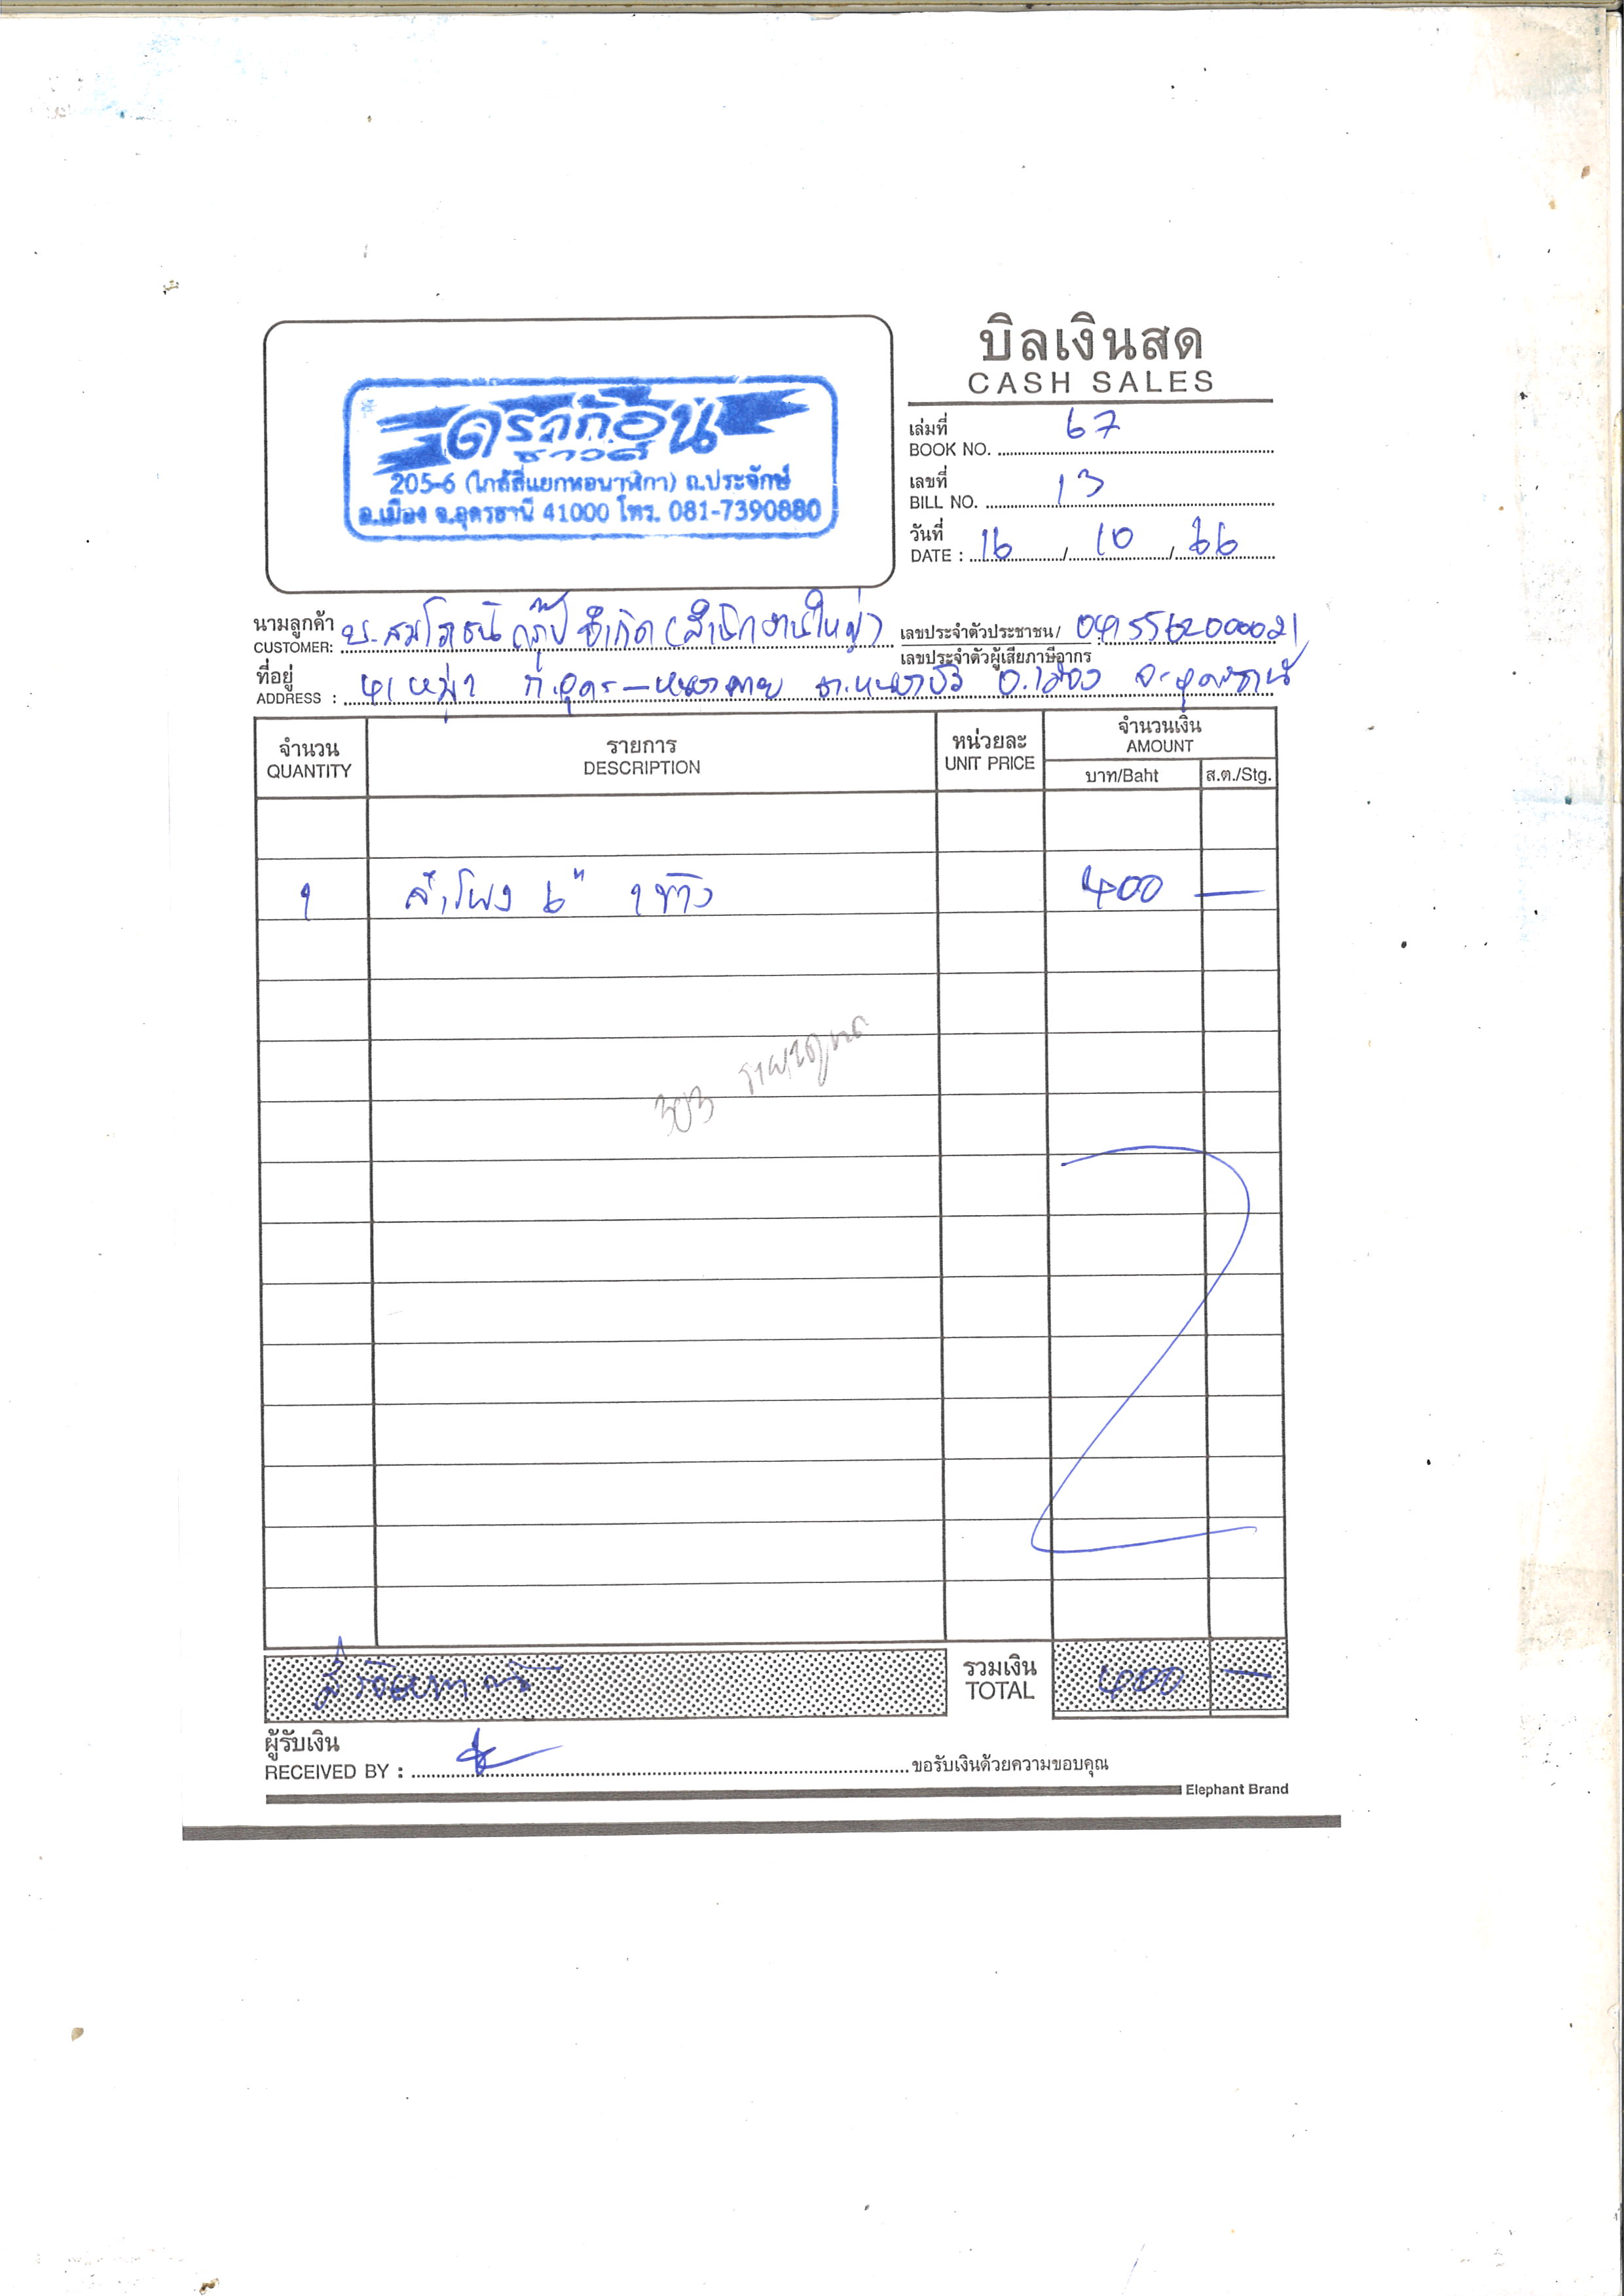 บิลเงินสด
CASH SALES
ดราก้อน
ซาวด์
205-6 (ใกล้สี่แยกหอนาฬิกา) ถ.ประจักษ์
อ.เมือง จ.อุดรธานี 41000 โทร. 081-7390880
เล่มที่ 67
BOOK NO.
เลขที่ 13
BILL NO.
วันที่ 16 / 10 / 66
DATE :
นามลูกค้า บ.สมโภชน์ กรุ๊ป จำกัด (สำนักงานใหญ่) เลขประจำตัวประชาชน/ 0415562000021
CUSTOMER: เลขประจำตัวผู้เสียภาษีอากร
ที่อยู่ ถ.อุดร-หนองคาย ต.หนองบัว อ.เมือง จ.อุดรธานี
ADDRESS :
จำนวน รายการ หน่วยละ จำนวนเงิน
QUANTITY DESCRIPTION UNIT PRICE AMOUNT
บาท/Baht ส.ต./Stg.
1 ลำโพง 6" 1 ข้าง 400 —
303
สี่ร้อยบาท รวมเงิน 400 —
TOTAL
ผู้รับเงิน
RECEIVED BY : ขอรับเงินด้วยความขอบคุณ
Elephant Brand